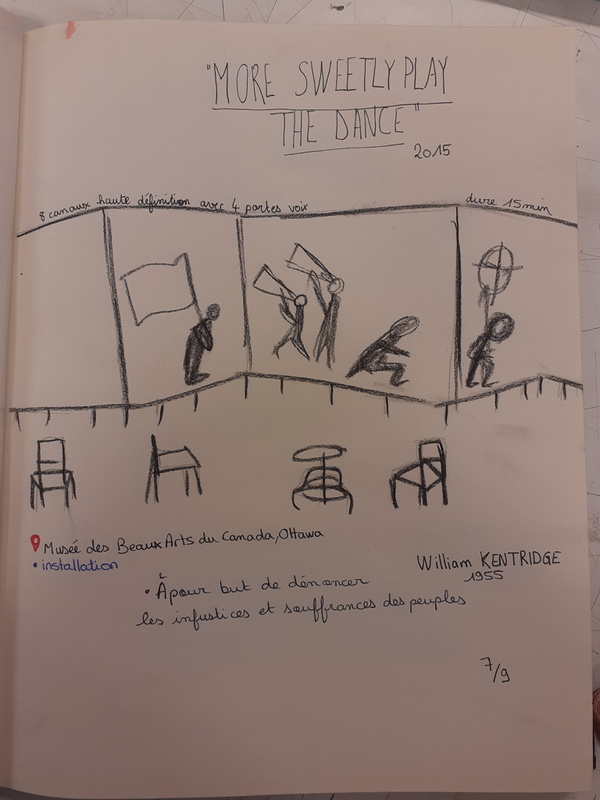 "MORE SWEETLY PLAY
THE DANCE"
2015
8 canaux haute définition avec 4 portes voir
dure 15min
Musée des Beaux Arts du Canada, Ottawa
• installation
William KENTRIDGE
1955
• À pour but de dénoncer
les injustices et souffrances des peuples
7/9